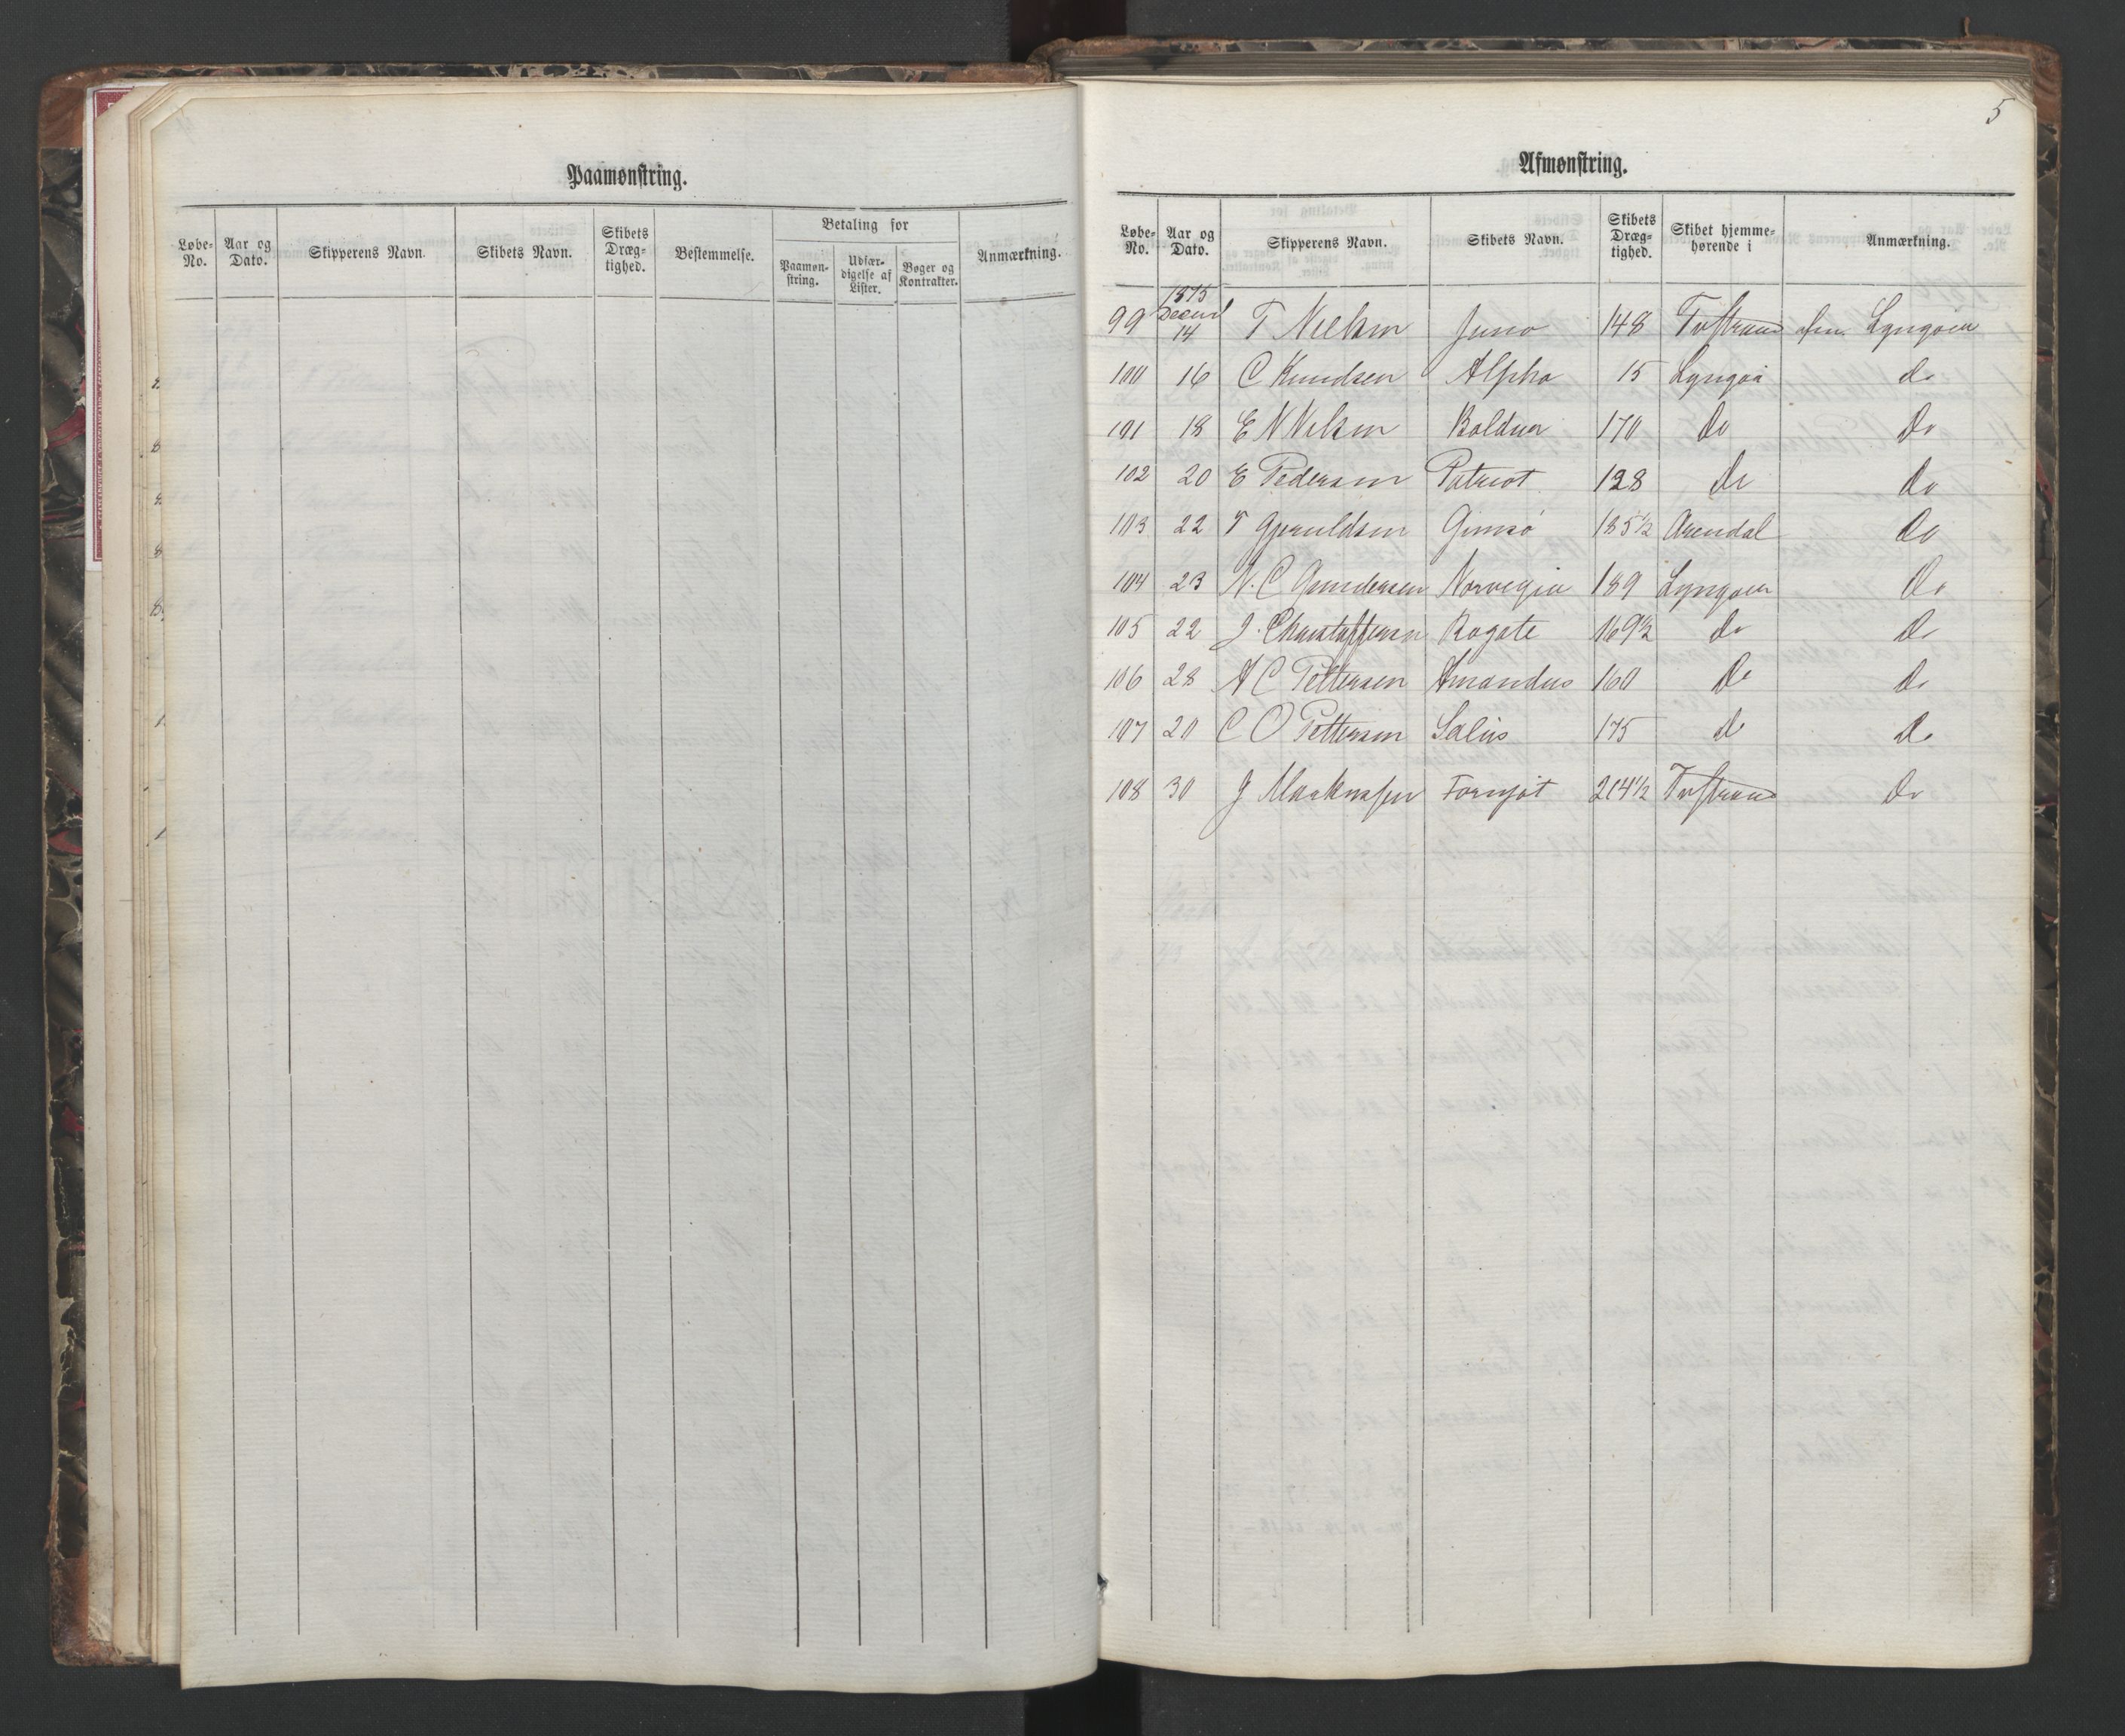 Paamønstring.
Løbe-No. Aar og Dato. Skipperens Navn. Skibets Navn. Skibets Dræg-tighed. Bestemmelse. Betaling for Paamøn-string. Udfær-digelse af Lister. Bøger og Kontrakter. Anmærkning.
5
Afmønstring.
Løbe-No. Aar og Dato. Skipperens Navn. Skibets Navn. Skibets Dræg-tighed. Skibet hjemme-hørende i Anmærkning.
1875
99 Decemb 14 T Nielsen Juno 148 Tvestrand Lyngøen
100 16 C Knudsen Alpha 15 Lyngøa do
101 18 E N Nielsen Balduer 170 Do Do
102 20 E Pedersen Patriot 128 Do Do
103 22 T Gjeruldsen Gimsø 185 1/2 Arendal Do
104 23 N. C Gundersen Norvegia 189 Lyngøen Do
105 22 J. Christoffersen Rogate 169 1/2 do Do
106 28 A C Pettersen Amandus 160 Do Do
107 20 C O Pettersen Salus 175 Do Do
108 30 J Fornjot 214 1/2 Tvestrand Do